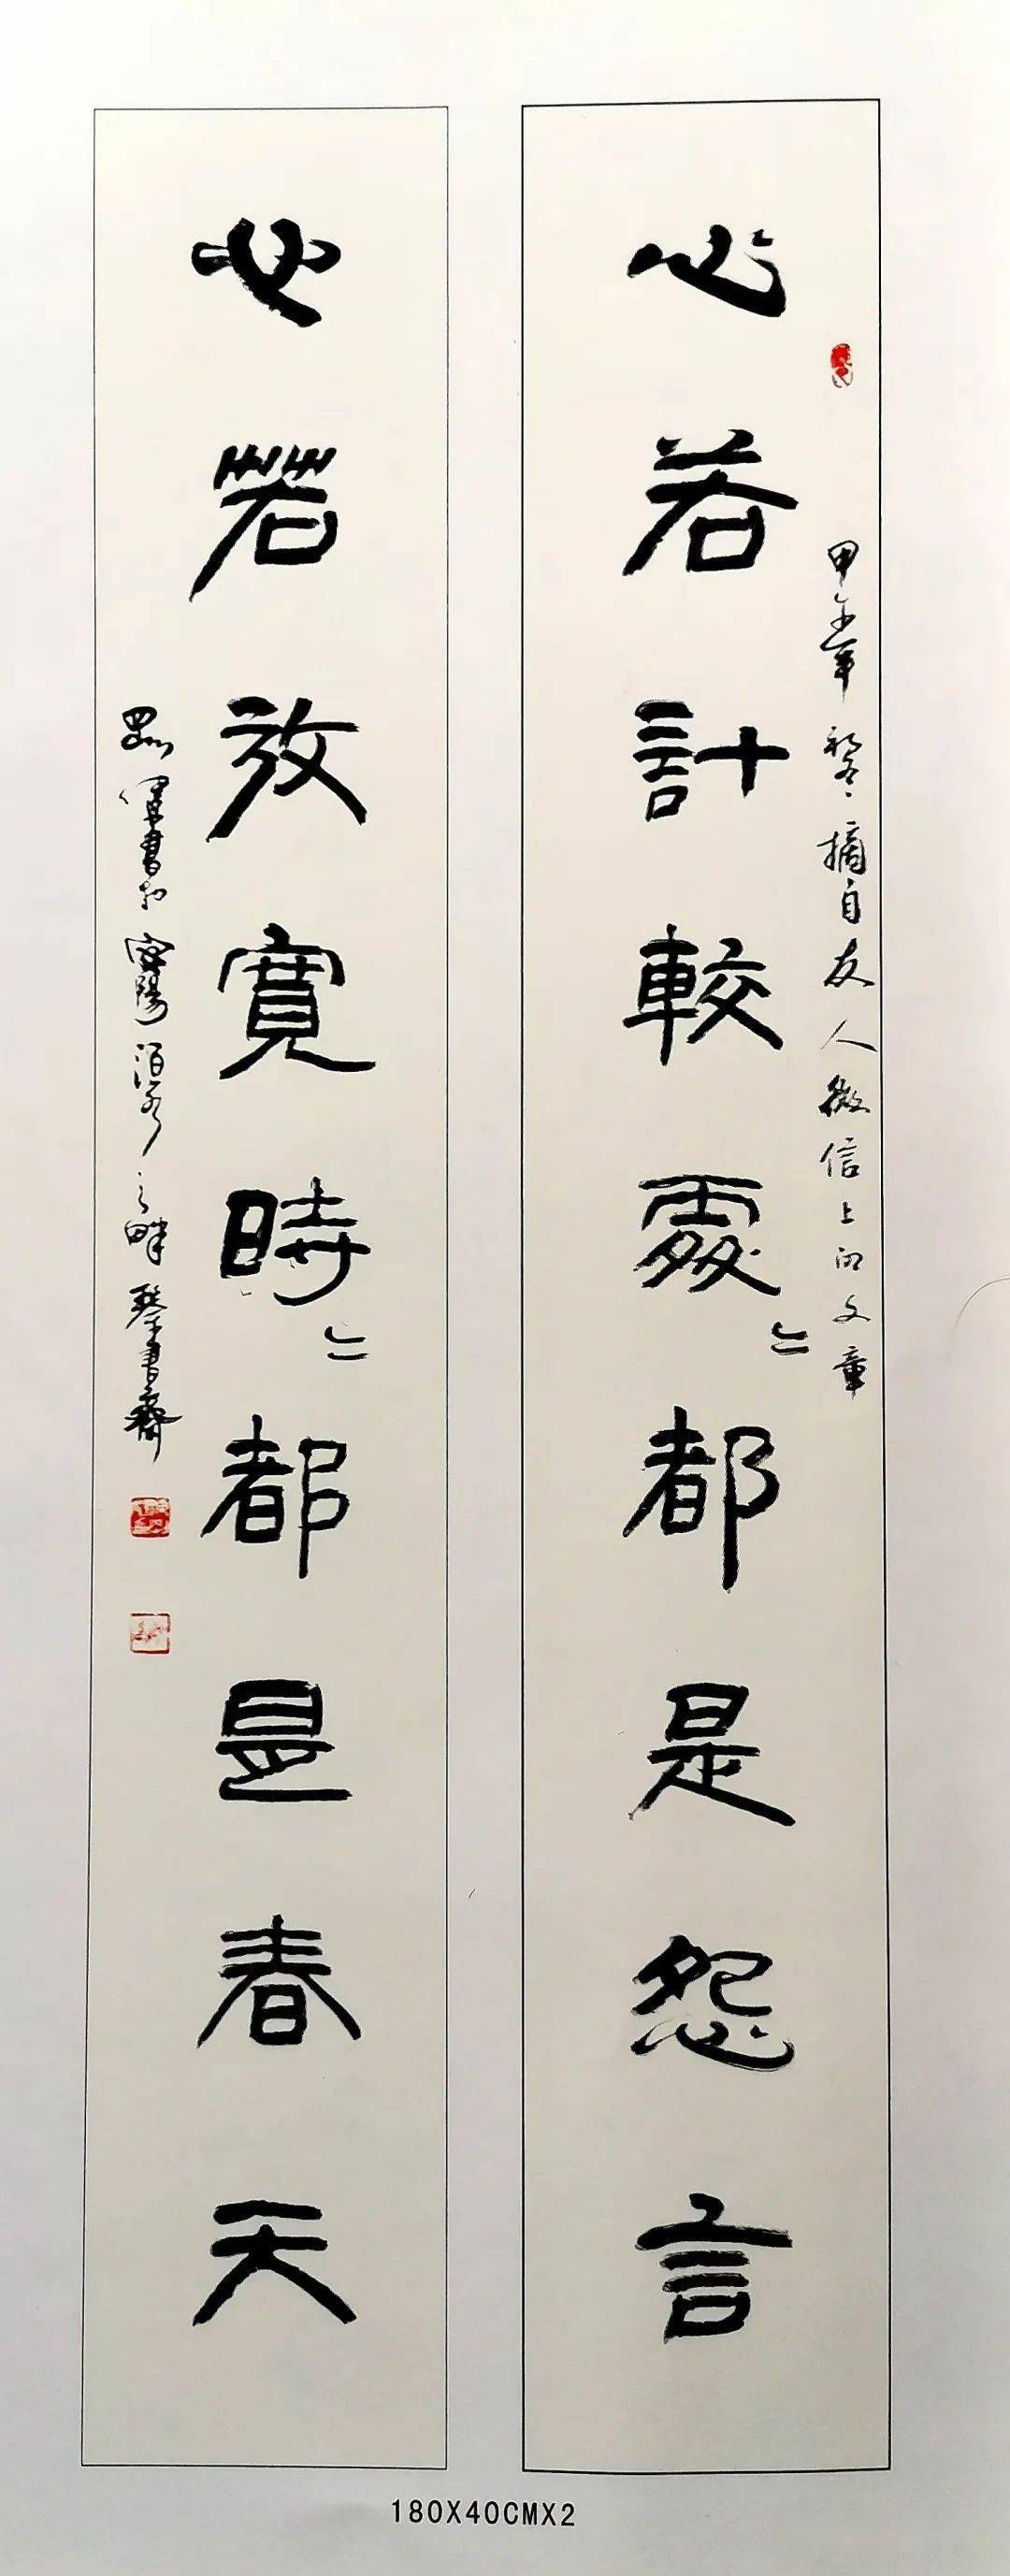 甲午年初冬摘自友人微信上的文章
心若計較處〻都是怨言
心若放寬時〻都是春天
書於濱陽泊水之畔琴書齋
180X40CMX2